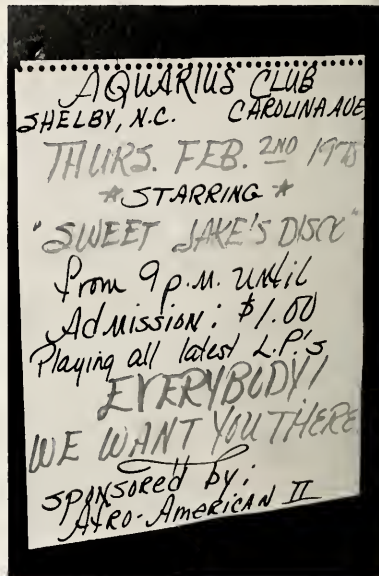 AQUARIUS CLUB
SHELBY, N.C. CAROLINA AVE,
THURS. FEB. 2ND 1978
* STARRING *
"SWEET JAKE'S DISCO"
from 9 p.m. until
Admission: $1.00
Playing all latest L.P.'s
EVERYBODY!
WE WANT YOU THERE
sponsored by:
Afro-American II